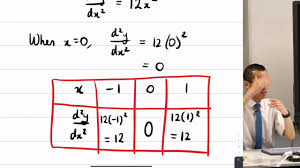 d²y/dx² = 12x²
When x=0, d²y/dx² = 12(0)²
= 0
x -1 0 1
d²y/dx² 12(-1)² = 12 0 12(1)² = 12